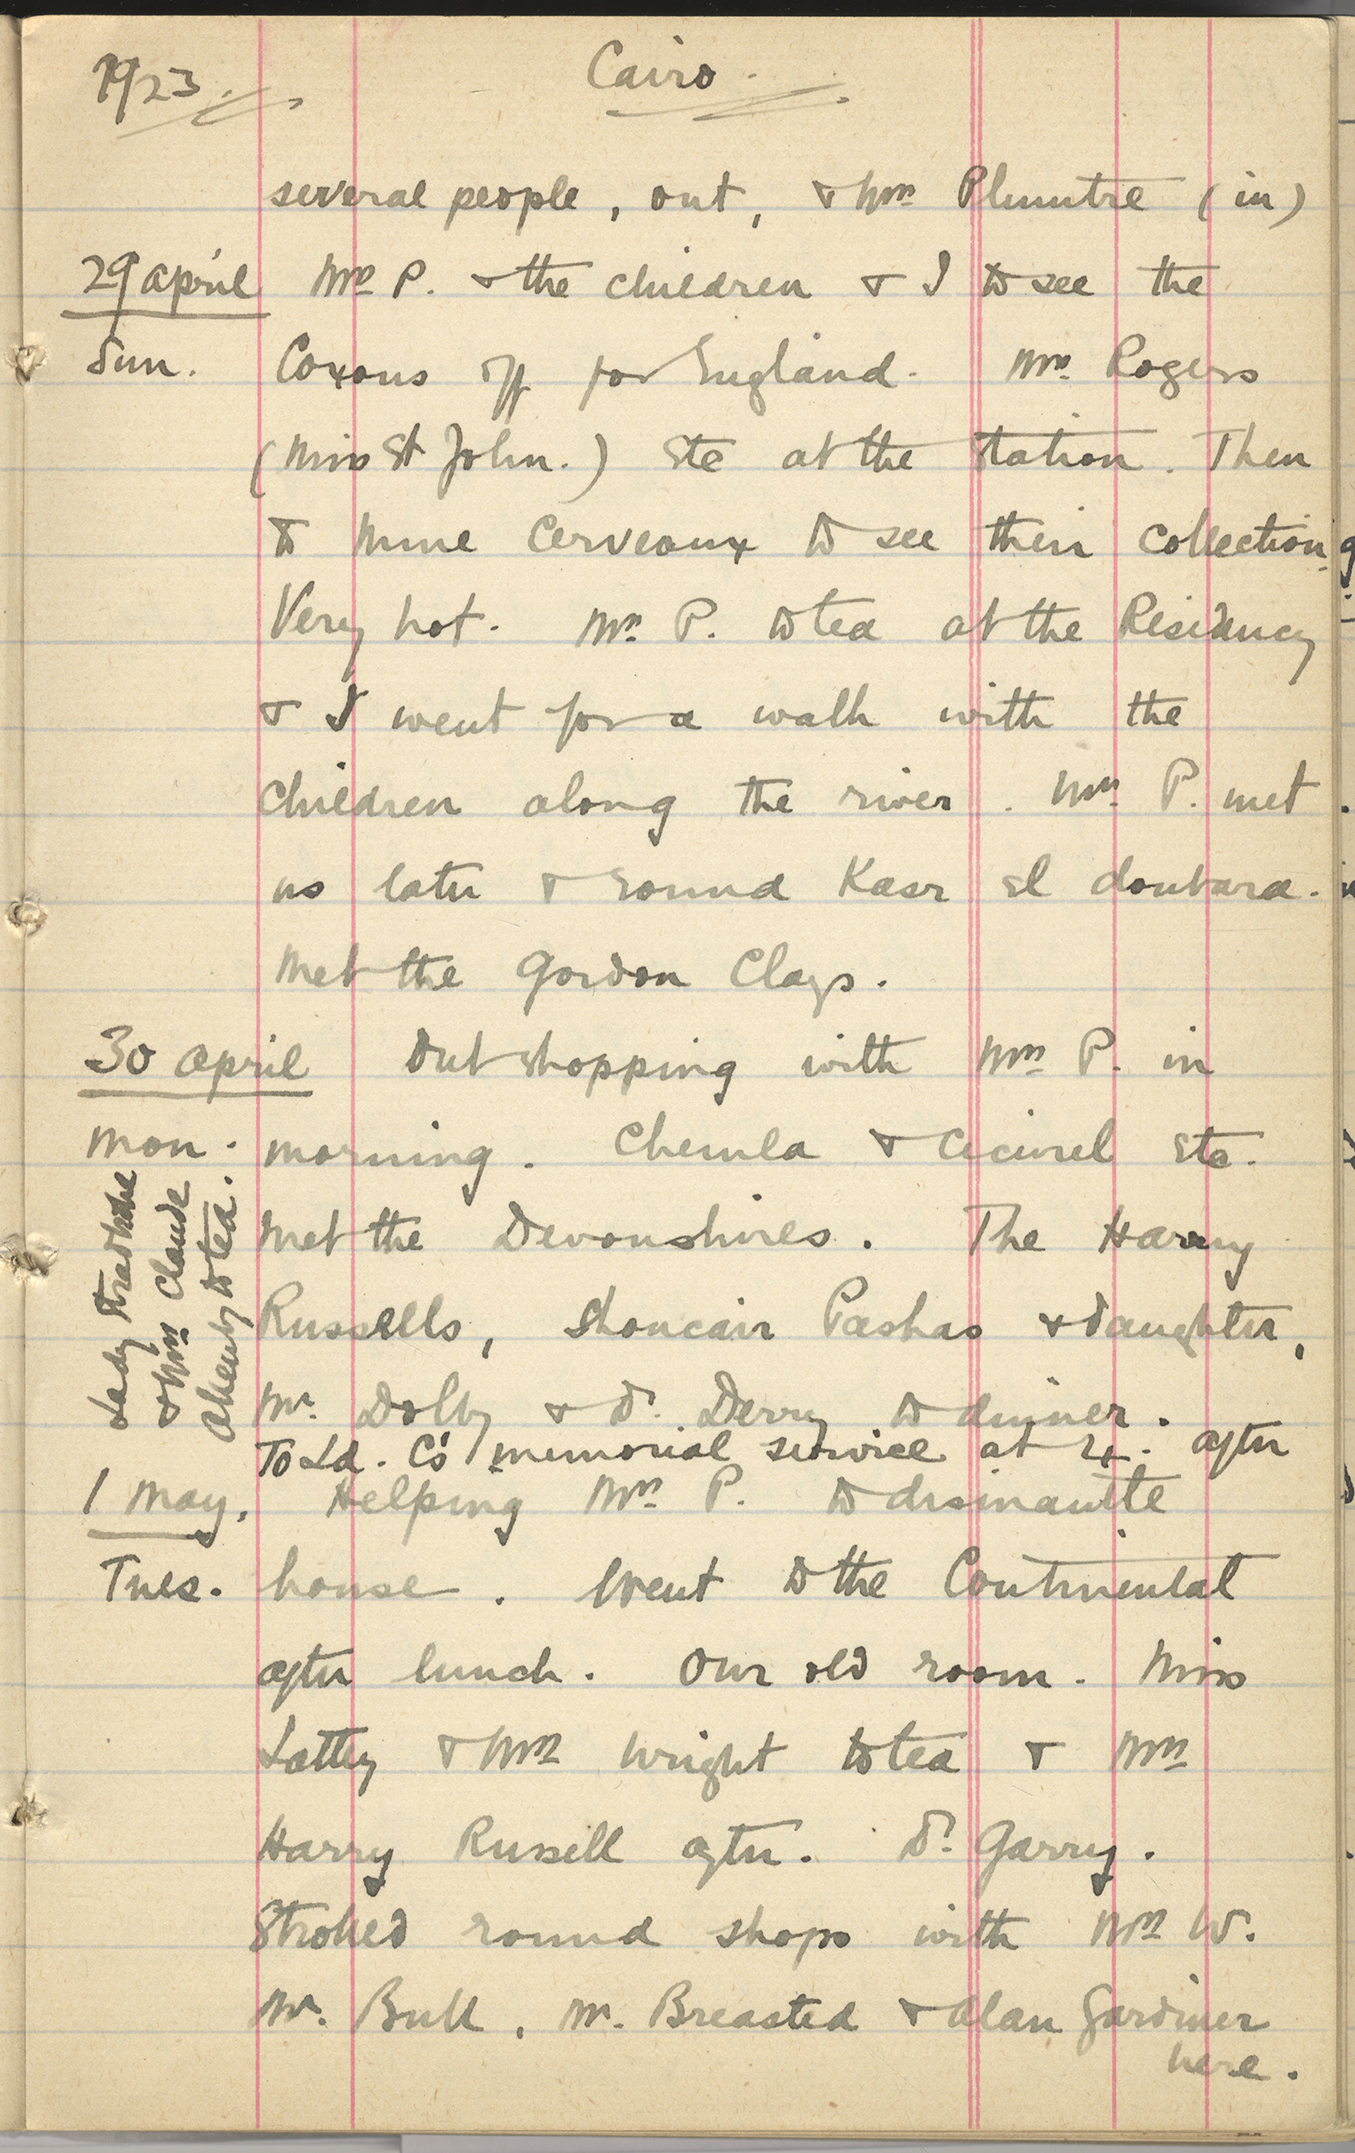 1923.
Cairo.
several people, out, & Mrs Plumtre (in)
29 April Mrs P. & the children & I to see the
Sun. Coxons off for England. Mrs. Rogers
(Miss St John.) etc at the station. Then
to Mme Cerveaux to see their collection.
Very hot. Mrs P. to tea at the Residency
& I went for a walk with the
children along the river. Mrs P. met
us later & round Kasr el doubara.
Met the Gordon Clays.
30 April Out shopping with Mrs P. in
Mon. morning. Chemla & Cicurel etc.
Met the Devonshires. The Harry
Russells, Shoucair Pashas & daughter,
Mr. Dolby & Dr. Derry to dinner.
Lady Strathche
& Mrs Claude
Allenby to tea.
To Ld. C's memorial service at 4. after
1 May. Helping Mrs P. to dismantle
Tues. house. Went to the Continental
after lunch. Our old room. Miss
Lattey & Mrs Wright to tea & Mrs
Harry Russell after. Dr. Garry.
Strolled round shops with Mrs W.
Mr. Bull, Mr. Breasted & Alan Gardiner
here.